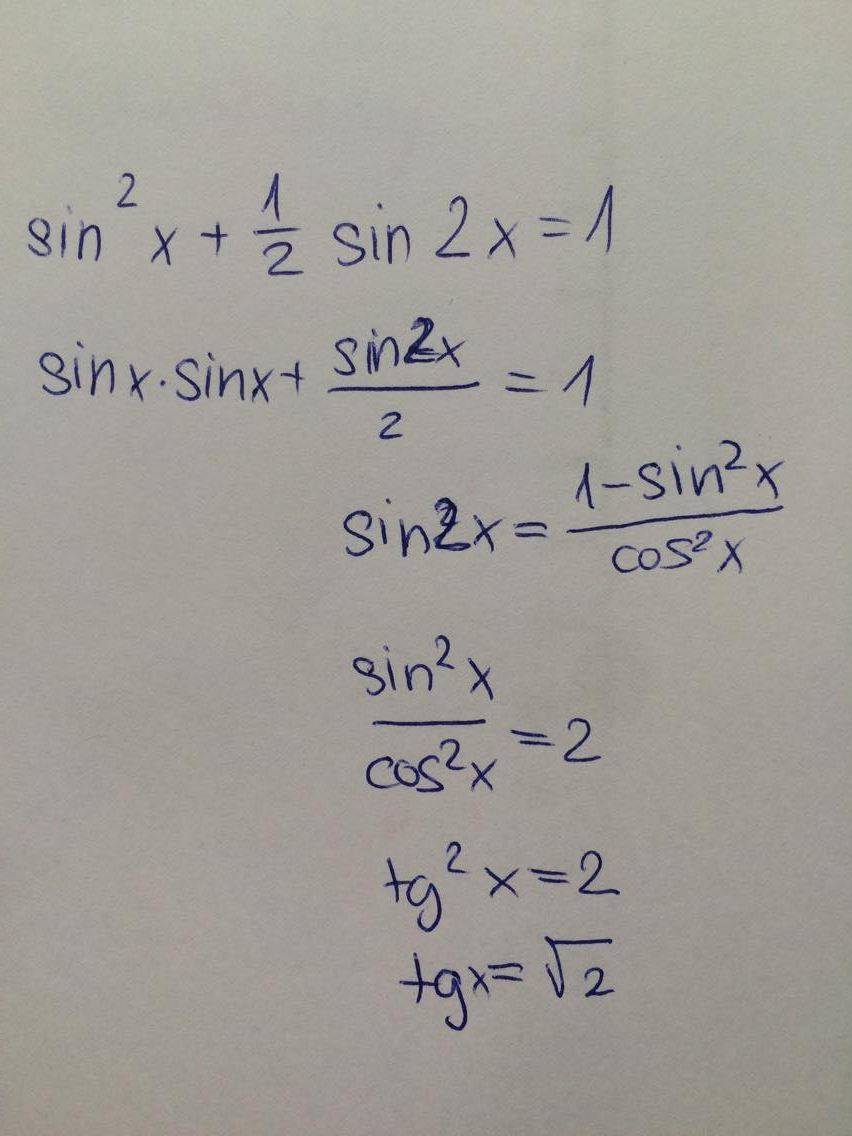 sin² x + 1/2 sin 2x = 1
sinx · sinx + sin2x/2 = 1
sin2x = 1-sin²x/cos²x
sin²x/cos²x = 2
tg² x = 2
tgx = √2